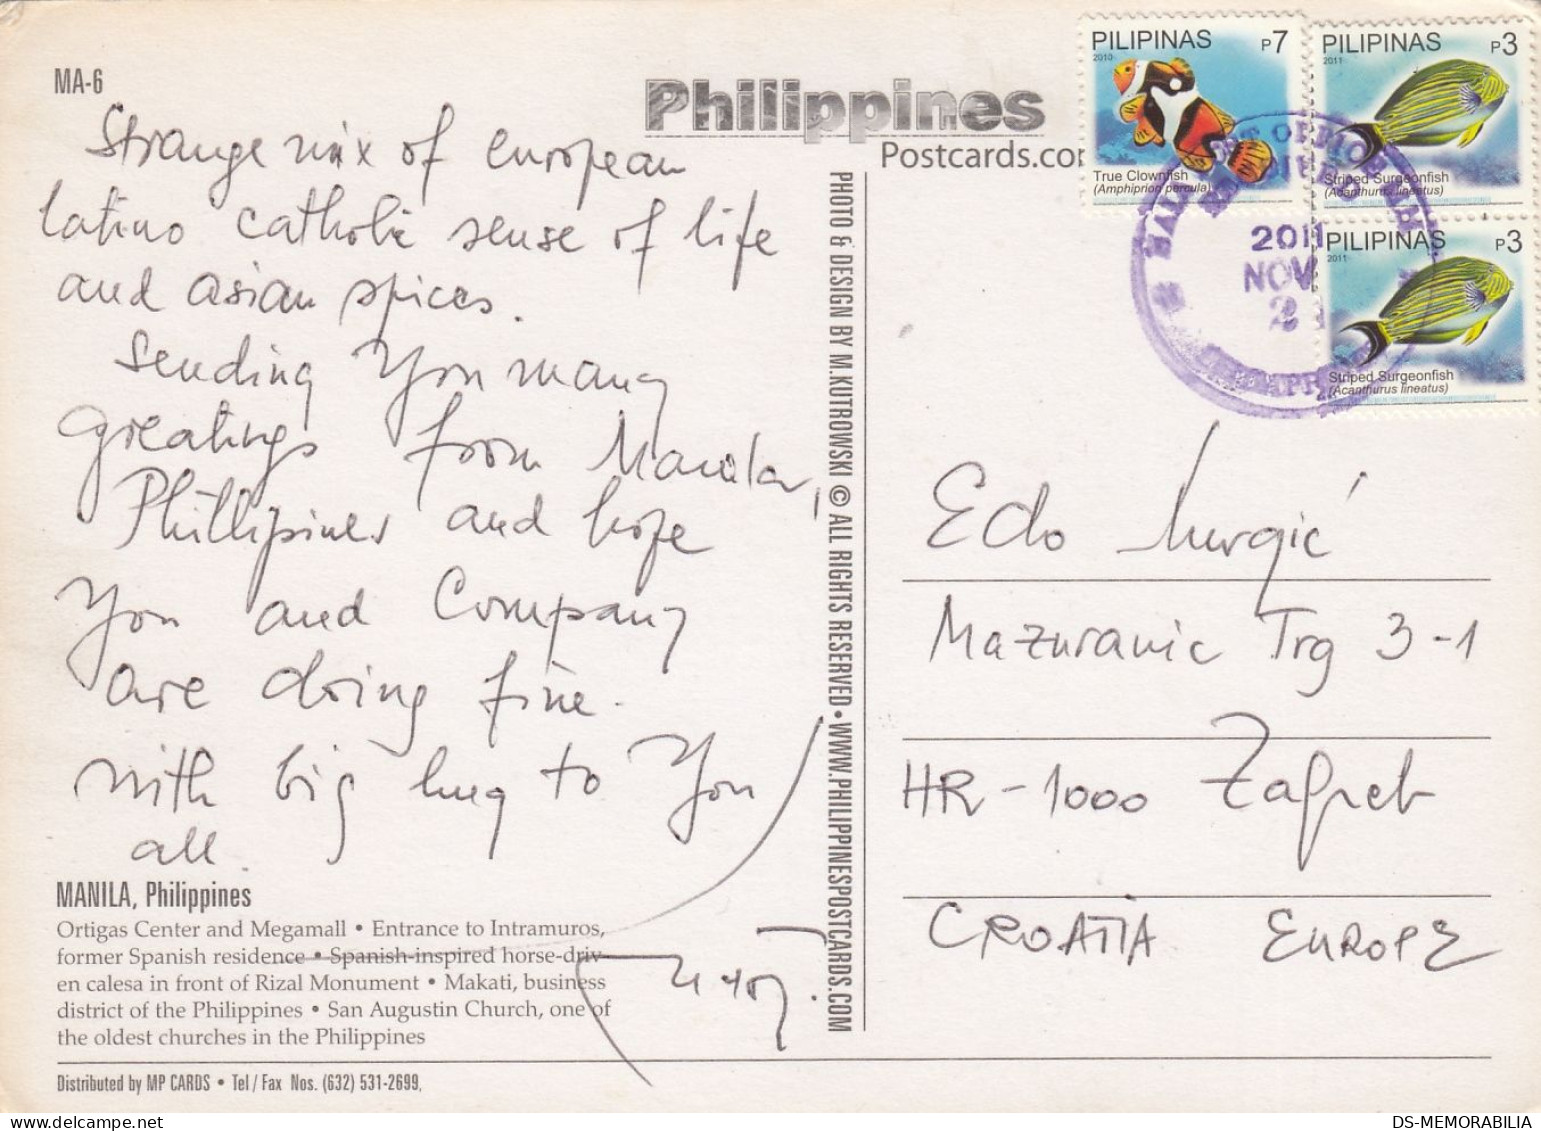 MA-6
Philippines
Postcards.com
Strange mix of european
latino catholic sense of life
and asian spices.
Sending You many
greatings from Manila,
Phillipines and hope
You and Company
are doing fine.
with big hug to You
all.
MANILA, Philippines
Ortigas Center and Megamall • Entrance to Intramuros,
former Spanish residence • Spanish-inspired horse-driv-
en calesa in front of Rizal Monument • Makati, business
district of the Philippines • San Augustin Church, one of
the oldest churches in the Philippines
Distributed by MP CARDS • Tel / Fax Nos. (632) 531-2699,
PHOTO & DESIGN BY M. KUTROWSKI © ALL RIGHTS RESERVED • WWW.PHILIPPINESPOSTCARDS.COM
PILIPINAS P7
2010
True Clownfish
(Amphiprion percula)
PILIPINAS P3
2011
Striped Surgeonfish
(Acanthurus lineatus)
PILIPINAS P3
2011
Striped Surgeonfish
(Acanthurus lineatus)
2011
NOV
2
Edo
Mazuranic Trg 3-1
HR-1000 Zagreb
CROATIA EUROPE
DS-MEMORABILIA